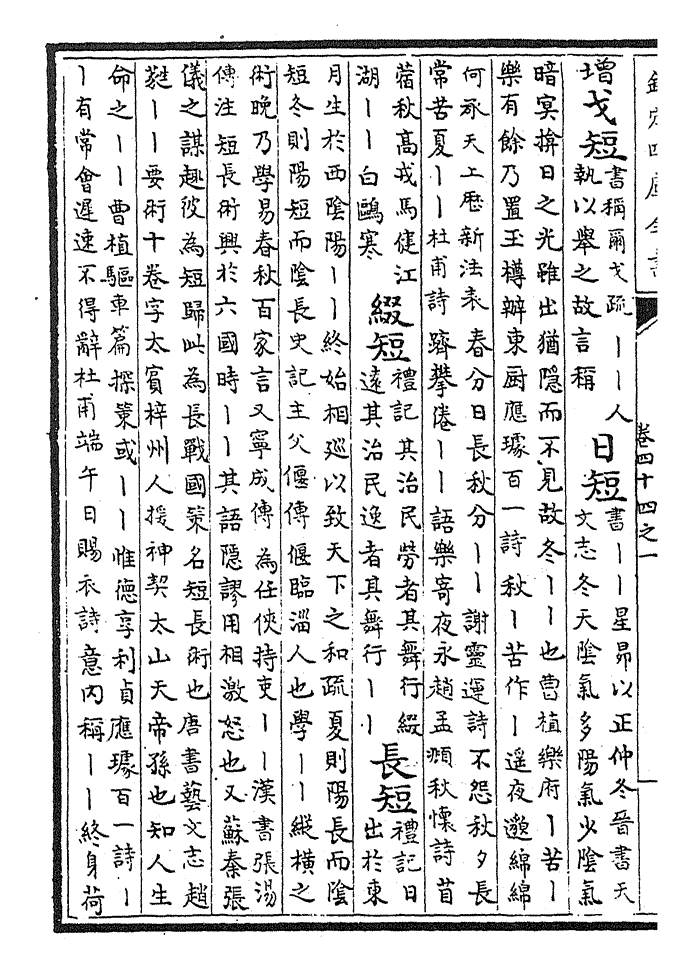 欽定四庫全書
卷四十四之一
增戈短
書稱爾戈疏丨丨人
執以舉之故言稱
日短
書丨丨星昴以正仲冬晉書天
文志冬天陰氣多陽氣少陰氣
暗冥揜日之光雖出猶隱而不見故冬丨丨也曹植樂府丨苦丨
樂有餘乃置玉樽辦東厨應璩百一詩秋丨苦作丨遥夜邈綿綿
何承天上厯新法表春分日長秋分丨丨謝靈運詩不怨秋夕長
常苦夏丨丨杜甫詩躋攀倦丨丨語樂寄夜永趙孟頫秋懷詩苜
蓿秋高戎馬健江
湖丨丨白鷗寒
綴短
禮記其治民勞者其舞行綴
遠其治民逸者其舞行丨丨
長短
禮記日
出於東
月生於西陰陽丨丨終始相廵以致天下之和疏夏則陽長而陰
短冬則陽短而陰長史記主父偃傳偃臨淄人也學丨丨縱橫之
術晚乃學易春秋百家言又寧成傳為任俠持吏丨丨漢書張湯
傳注短長術興於六國時丨丨其語隱謬用相激怒也又蘇秦張
儀之謀趣彼為短歸此為長戰國策名短長術也唐書藝文志趙
蕤丨丨要術十卷字太賓梓州人援神契太山天帝孫也知人生
命之丨丨曹植驅車篇探策或丨丨惟德享利貞應璩百一詩丨
丨有常會遲速不得辭杜甫端午日賜衣詩意内稱丨丨終身荷